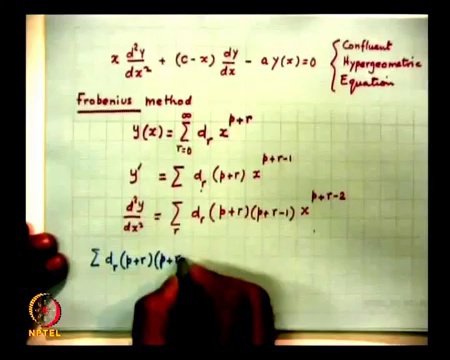 x d²y/dx² + (c-x) dy/dx - a y(x) = 0 { Confluent
Hypergeometric
Equation
Frobenius method
y(x) = ∑_{r=0}^{∞} d_r x^{p+r}
y' = ∑ d_r (p+r) x^{p+r-1}
d²y/dx² = ∑_r d_r (p+r)(p+r-1) x^{p+r-2}
∑ d_r (p+r)(p+r
NPTEL